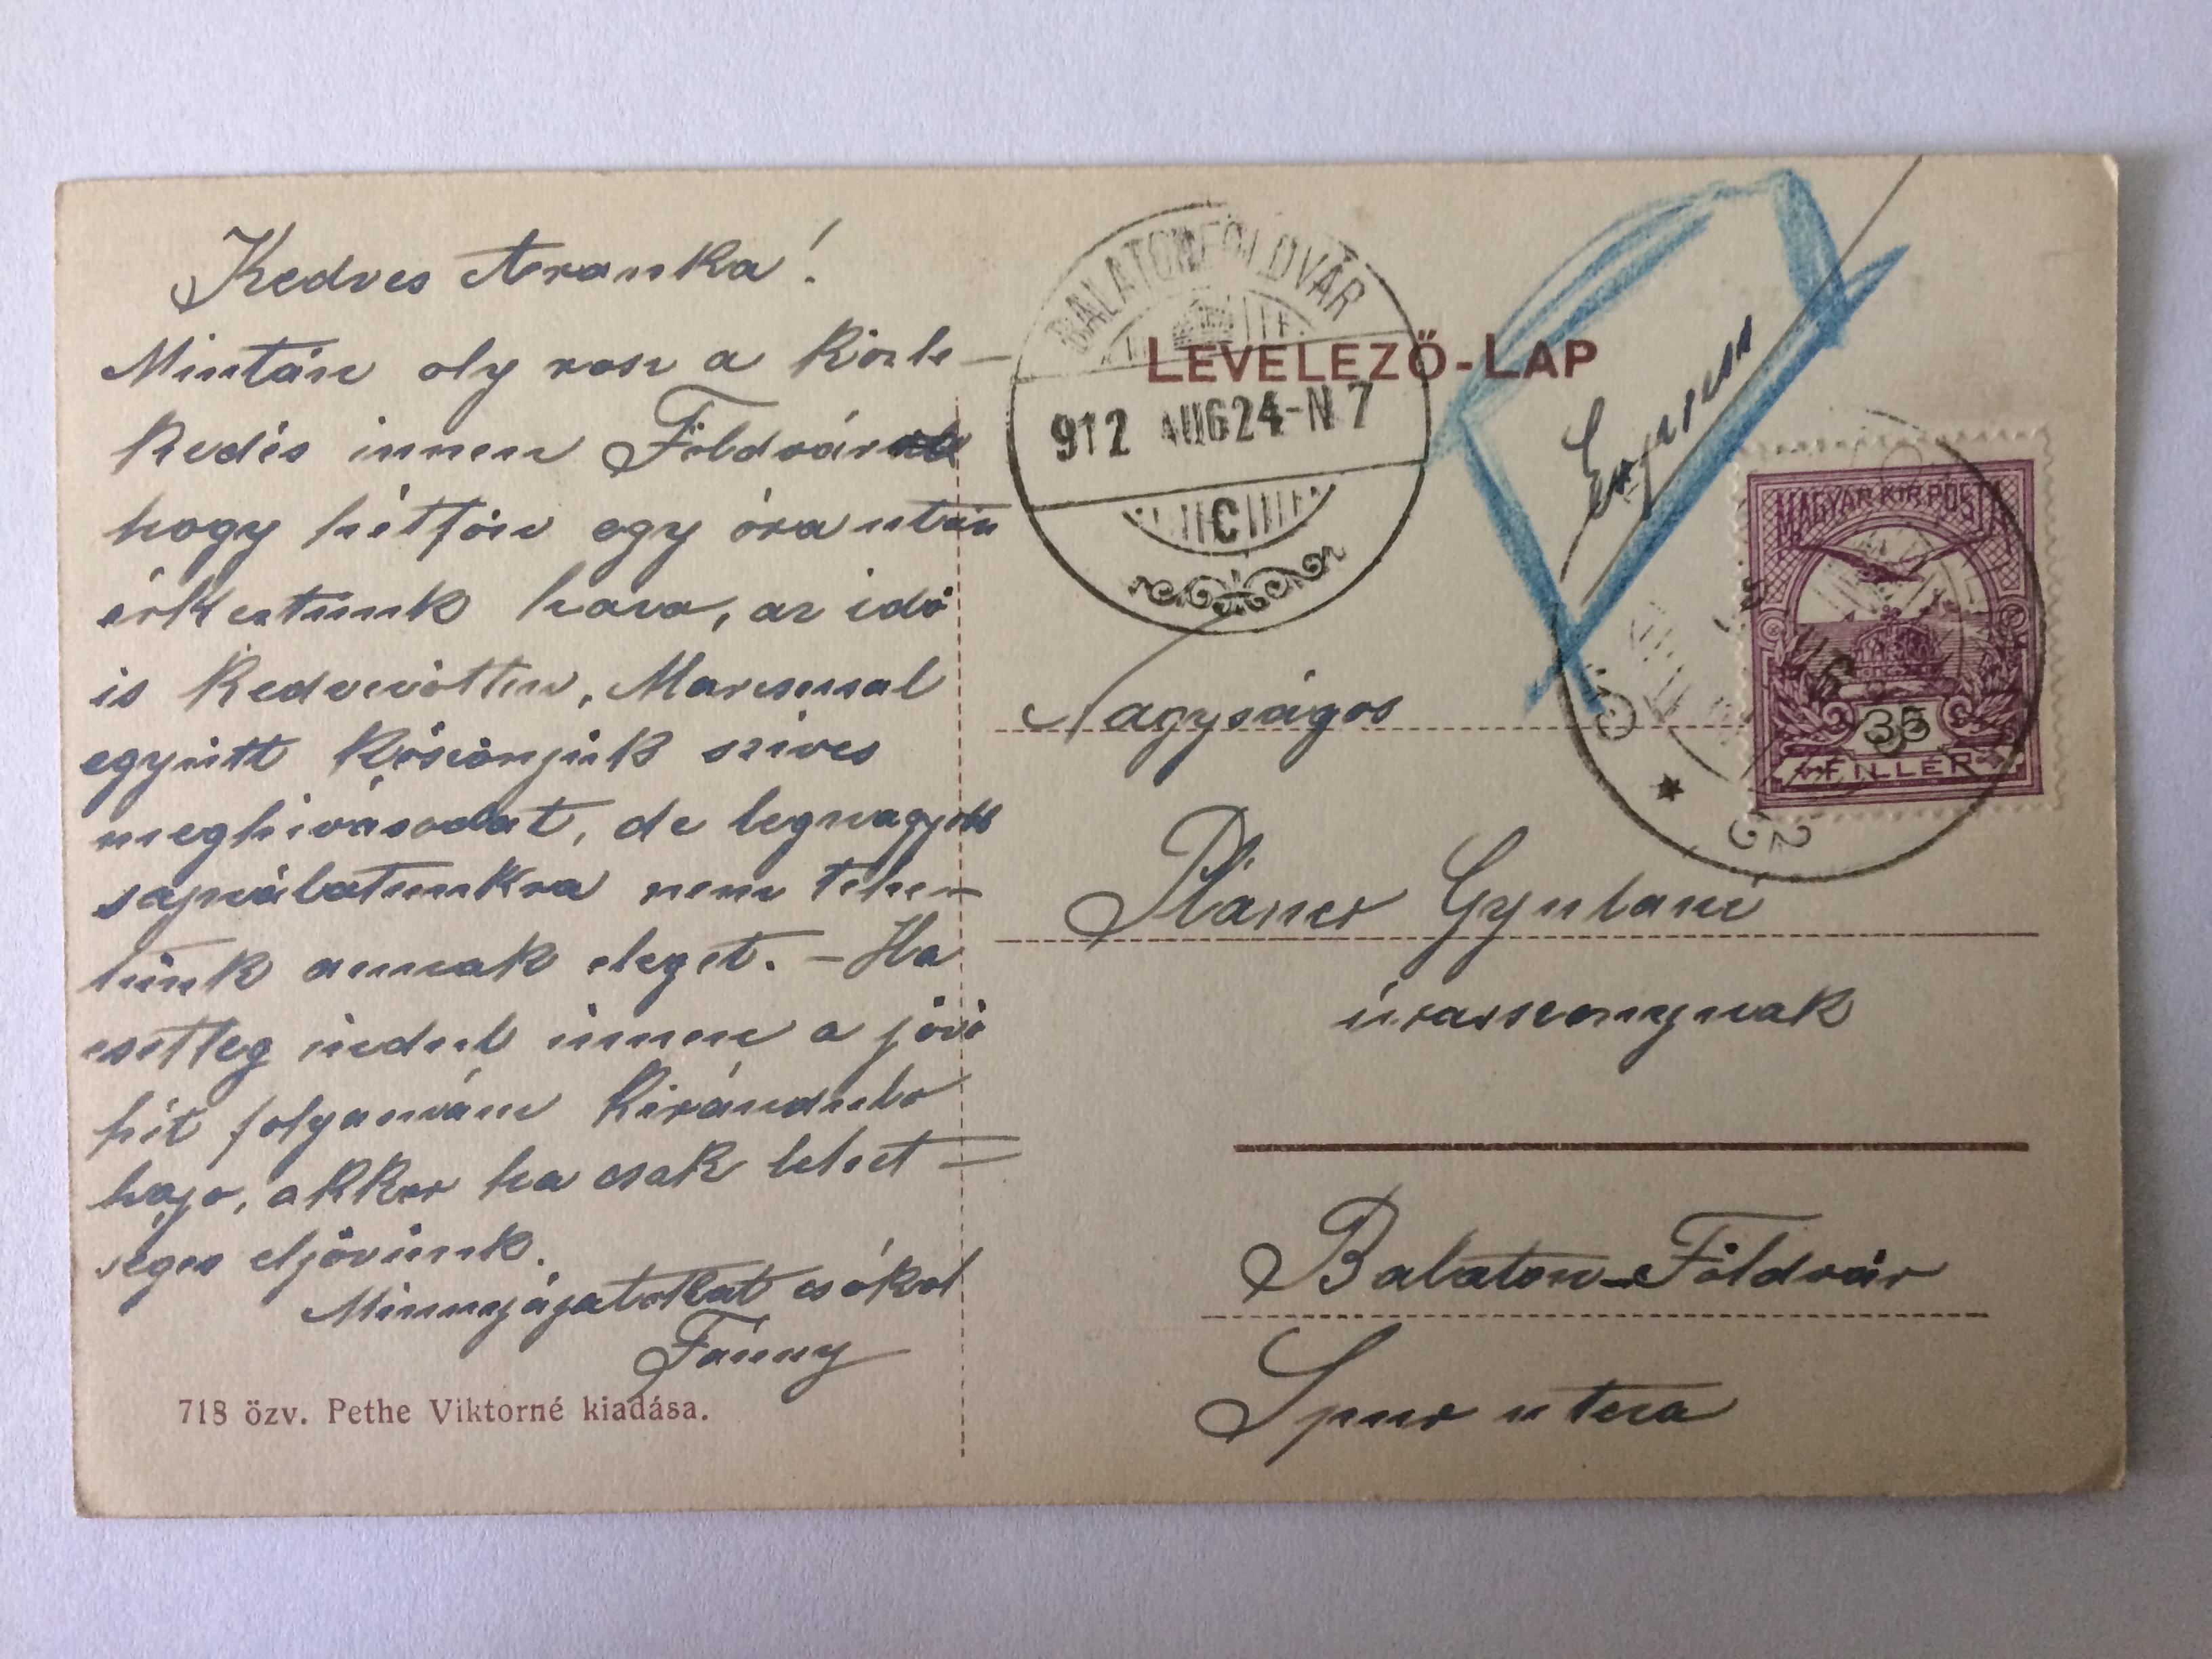 Kedves Aranka!
Mintán oly rosz a közle-
kedés innen Földvárra
hogy hétfőn egy óra után
érkeztünk haza, az idő
is kedvezőtlen, Marcsával
együtt köszönjük szives
meghivásodat, de legnagyobb
sajnálatunkra nem tehe-
tünk annak eleget. - Ha
esetleg indul innen a jövő
hét folyamán kiránduló
hajo, akkor ha csak lehet=
séges eljövünk.
Minnyájatokat csókol
Fánny
718 özv. Pethe Viktorné kiadása.
BALATONFÖLDVÁR
912 AUG 24-N 7
C
LEVELEZŐ-LAP
Expressz
MAGYAR KIR. POSTA
35
FILLÉR
Nagyságos
Pláner Gyuláné
úrasszonynak
Balaton-Földvár
Spur utca